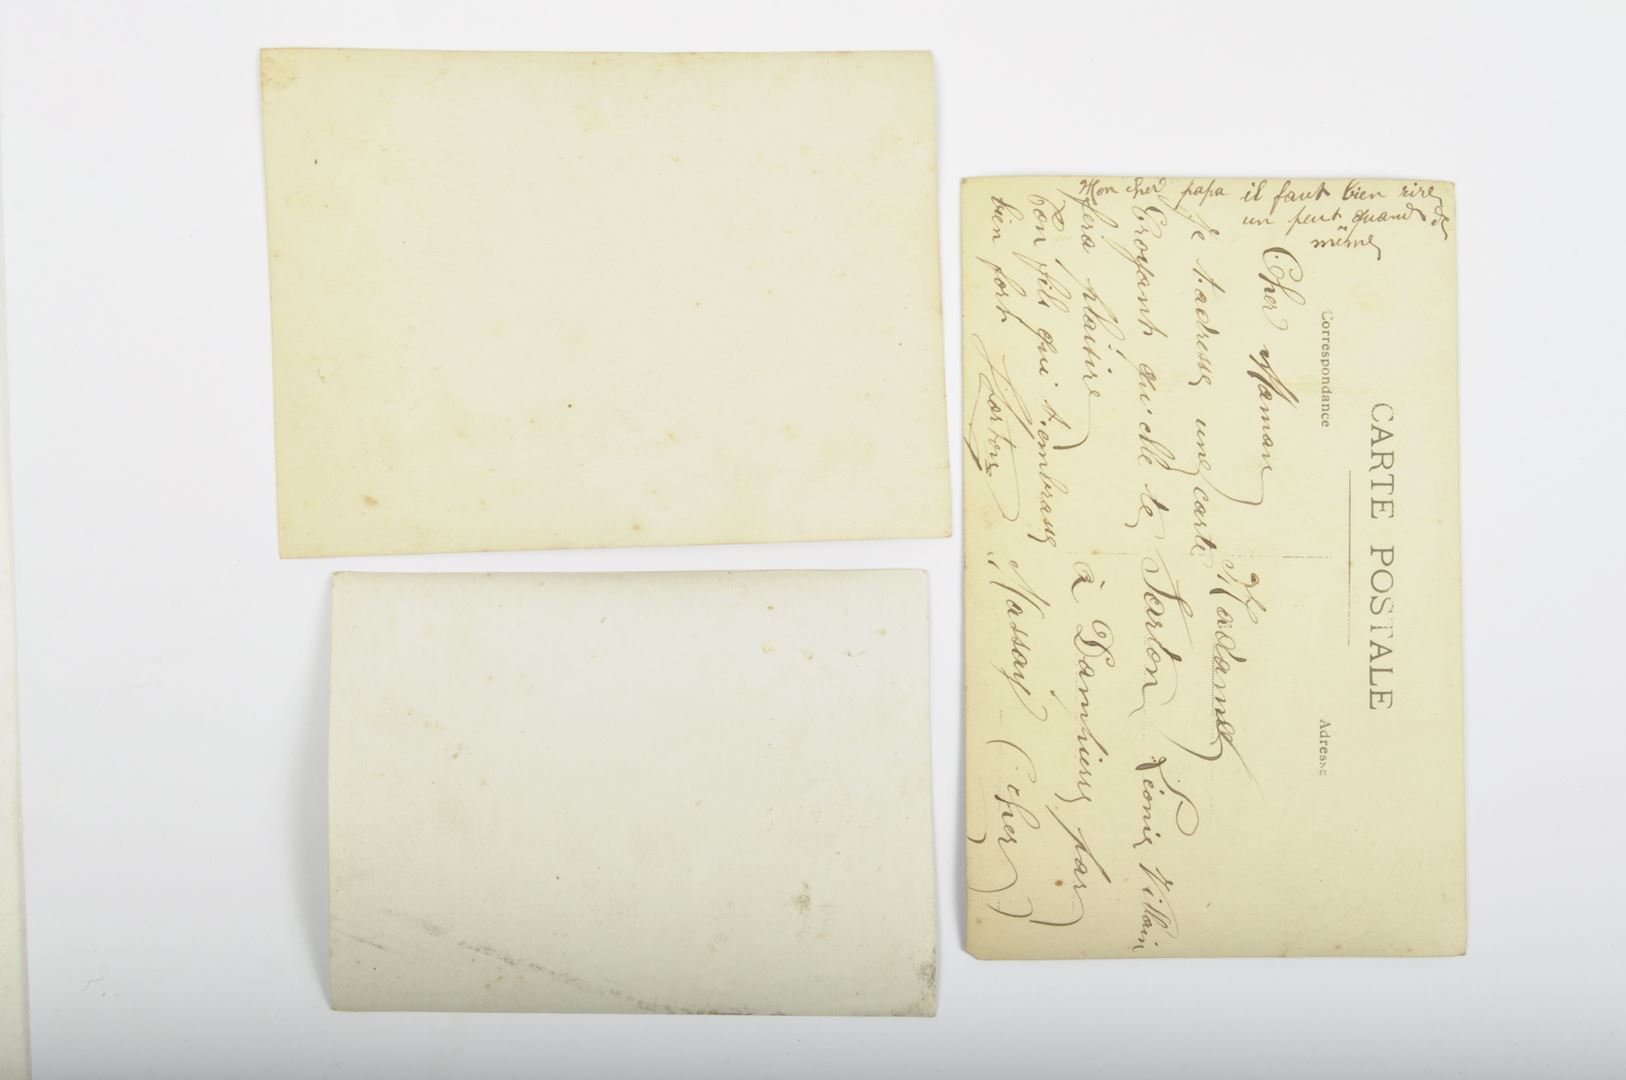 Mon cher papa il faut bien rire
un peut quand
même
CARTE POSTALE
Correspondance
Adresse
Cher Maman
Je t'adresse une carte
Croyant qu'elle te
fera plaisire
Ton fils qui t'embrasse
bien fort
Madame
Sarton Léonie Villain
à Dampierre par
Massay (Cher)